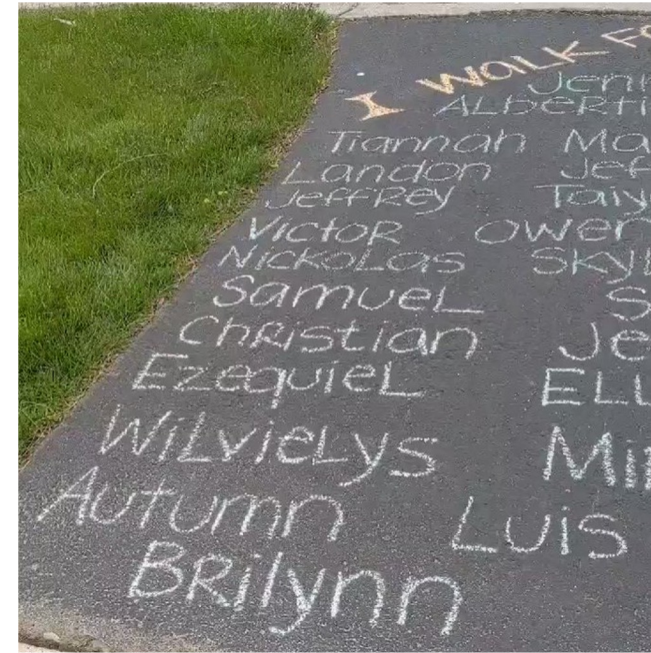 I WALK FO
Jenn
ALberti
Tiannah Ma
Landon Jef
JeffRey Taiy
VictoR owen
NickoLas SkyL
SamueL S
ChRistian Je
EzequieL ELL
WiLvieLys Mi
Autumn Luis
BRilynn